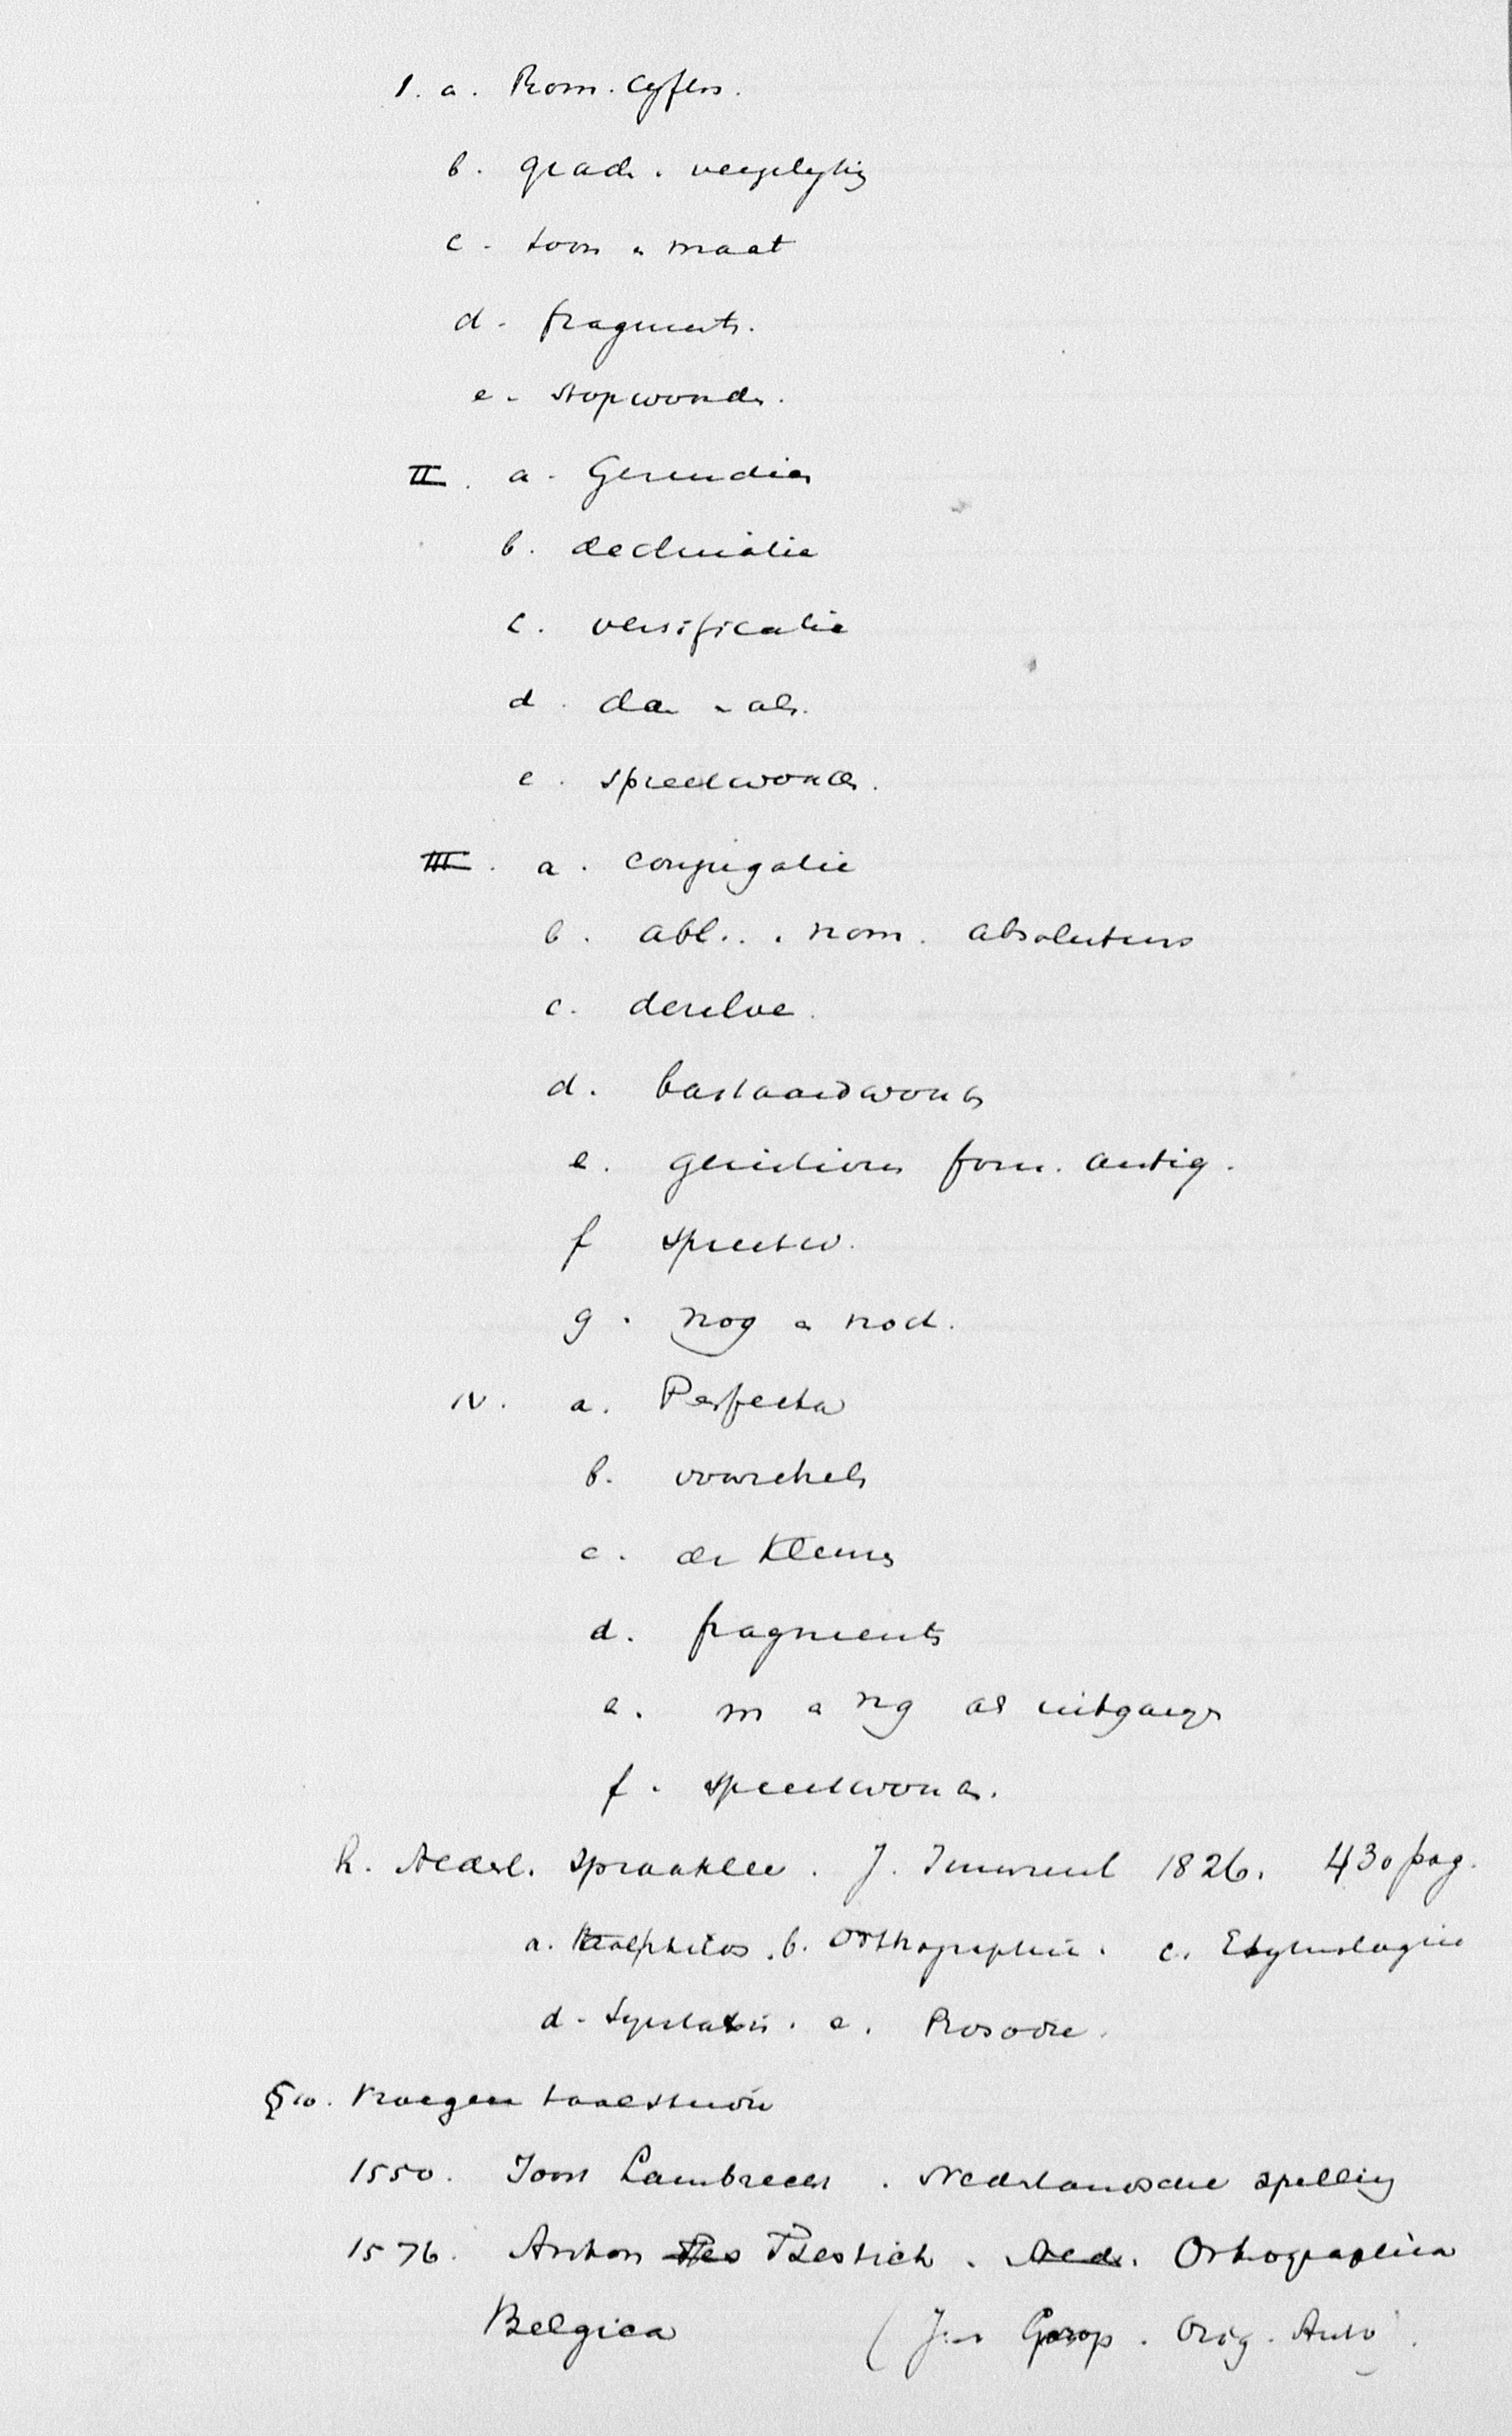 I. a. Rom. cyfers.
b. grad. vergelyking
c. toon & maat
d. fragments.
e. stopwoorden.
II. a. Gerundia
b. declinatie
c. versificatie
d. dan als.
e. spreekwoorden.
III. a. conjugatie
b. abl. nom. absolutus
c. derzelve.
d. bastaardwoorden
e. form. antiq.
f spreekw.
g. nog & noch.
IV. a. Perfecta
b. voorzetsels
c. de klems
d. fragments
e. m & ng als uitgangen
f. spreekwoorden.
h. Nederl. spraakleer. J. 1826. 430 pag.
a. b. Orthographie. c. Etymologie
d. Syntaxis. e. Prosodie.
§10. taalstudie
1550. Joos Lambrecht. Nederlandsche spelling
1576. Anton Tsestich. Ned. Orthographia
Belgica (Jan Gorop. Orig. Antv.